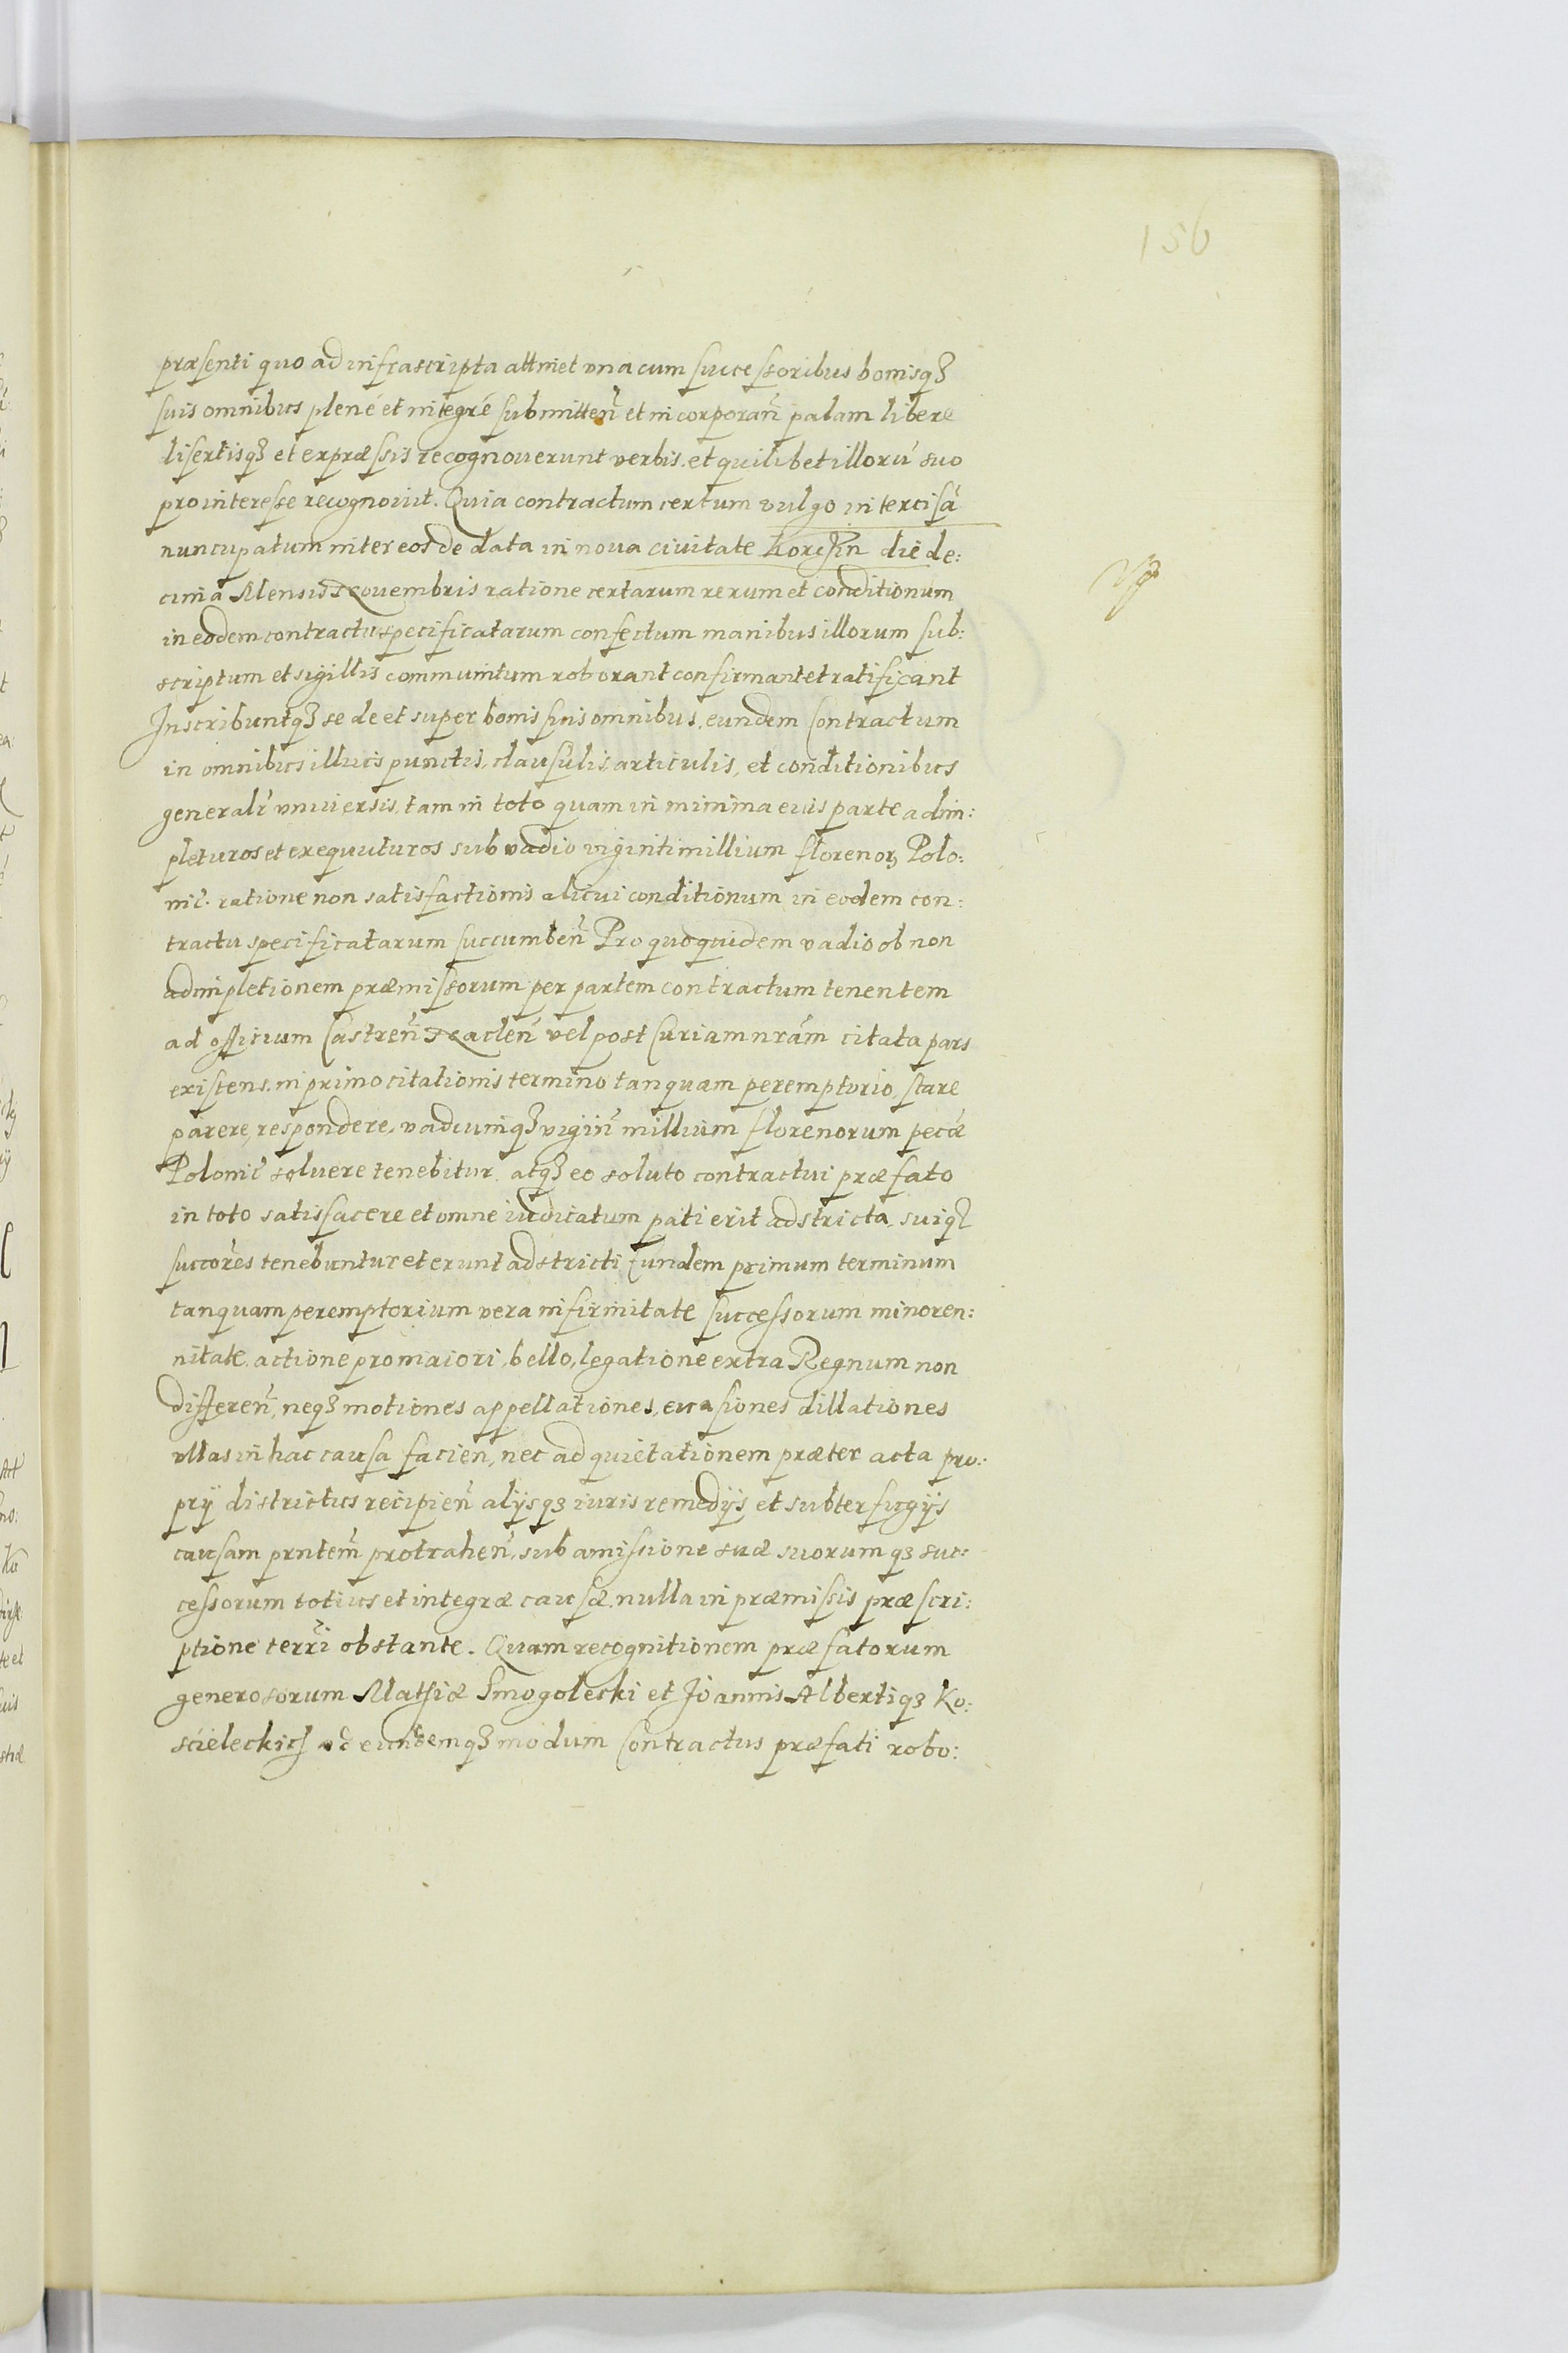 156
præsenti quo ad infrascripta attinet vna cum successoribus bonisqꝫ
suis omnibus plené et integré submitteñ et incorporañ palam libere
disertisqꝫ et expræssis recognouerunt verbis, et quilibet illorú suo
pro interesse recognouit. Quia contractum certum vulgo intercisá
nuncupatum inter eos de data in noua ciuitate Korczin die de:
cima Mensis Nouembris ratione certarum rerum et conditionum
in eodem contractu specificatarum confectum manibus illorum sub:
scriptum et sigillis communitum roborant confirmant et ratificant
Inscribuntqꝫ se de et super bonis suis omnibus, eundem Contractum
in omnibus illius punctis, clausulis articulis, et conditionibus
generalr vniuersis, tam in toto quam in minima eius parte adim:
pleturos et exequuturos sub vadio viginti millium florenoꝝ Polo:
nic. ratione non satisfactionis alicui conditionum in eodem con:
tractu specificatarum succumbeñ Pro quo quidem vadio ob non
adimpletionem præmissorum per partem contractum tenentem
ad officium Castreñ Nacleñ vel post Curiam nrám citata pars
existens, in primo citationis termino tanquam peremptorio, stare
parere, respondere, vadiumqꝫ vigiñ millium florenorum pecæ
Polonic soluere tenebitur. atqꝫ eo soluto contractui præfato
in toto satisfacere et omne iudicatum pati erit adstricta, suiqꝫ
succores tenebuntur et erunt adstricti Eundem primum terminum
tanquam peremptorium vera infirmitate successorum minoren:
nitate, actione pro maiori, bello, legatione extra Regnum non
differeñ, neqꝫ motiones appellationes, euasiones dillationes
vllas in hac causa facien, nec ad quietationem præter acta pro:
prij districtus recipieñ alijsqꝫ iuris remedijs et subterfugijs
causam prntem protraheñ, sub amissione suæ suorumqꝫ suc:
cessorum totius et integræ causæ, nulla in præmissis præscri:
ptione terri obstante. Quam recognitionem præfatorum
generosorum Mathiæ Smogolecki et Joannis Albertiqꝫ Ko:
scieleckich ad eundemqꝫ modum Contractus præfati robo: